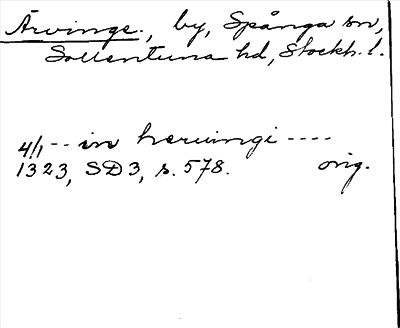 Ärvinge., by, Spånga sn,
Sollentuna hd, Stockh. l.
4/1 -- in heruingi ----
1323, SD 3, s. 578. orig.